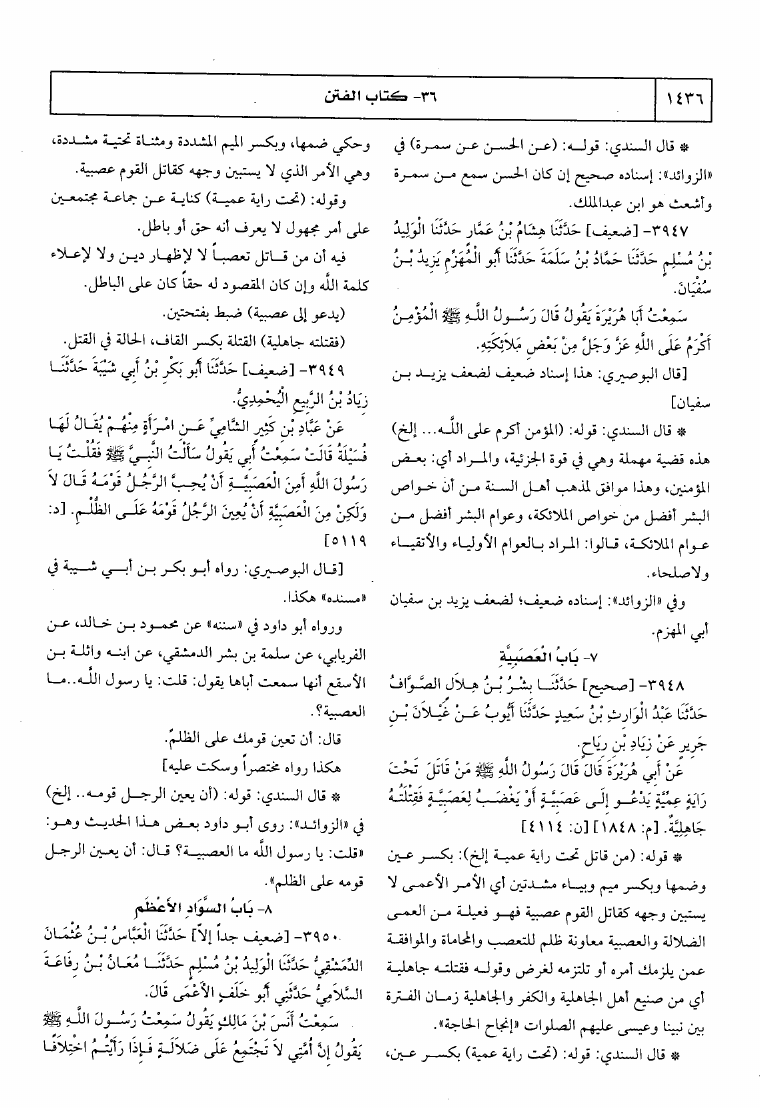 ١٤٣٦
٣٦- كتاب الفتن
* قال السندي: قوله: (عن الحسن عن سمرة) في
«الزوائد»: إسناده صحيح إن كان الحسن سمع من سمرة
وأشعث هو ابن عبدالملك.
٣٩٤٧- [ضعيف] حَدَّثَنَا هِشَامُ بْنُ عَمَّارٍ حَدَّثَنَا الْوَلِيدُ
بْنُ مُسْلِمٍ حَدَّثَنَا حَمَّادُ بْنُ سَلَمَةَ حَدَّثَنَا أَبُو الْمُهَزِّمِ يَزِيدُ بْنُ
سُفْيَانَ.
سَمِعْتُ أَبَا هُرَيْرَةَ يَقُولُ قَالَ رَسُولُ اللَّهِ ﷺ الْمُؤْمِنُ
أَكْرَمُ عَلَى اللَّهِ عَزَّ وَجَلَّ مِنْ بَعْضِ مَلاَئِكَتِهِ.
[قال البوصيري: هذا إسناد ضعيف لضعف يزيد بن
سفيان]
* قال السندي: قوله: (المؤمن أكرم على اللَّه... إلخ)
هذه قضية مهملة وهي في قوة الجزئية، والمراد أي: بعض
المؤمنين، وهذا موافق لمذهب أهل السنة من أن خواص
البشر أفضل من خواص الملائكة، وعوام البشر أفضل من
عوام الملائكة، قالوا: المراد بالعوام الأولياء والأتقياء
ولاصلحاء.
وفي «الزوائد»: إسناده ضعيف؛ لضعف يزيد بن سفيان
أبي المهزم.
٧- بَابُ الْعَصَبِيَّةِ
٣٩٤٨- [صحيح] حَدَّثَنَا بِشْرُ بْنُ هِلاَلٍ الصَّوَّافُ
حَدَّثَنَا عَبْدُ الْوَارِثِ بْنُ سَعِيدٍ حَدَّثَنَا أَيُّوبُ عَنْ غَيْلاَنَ بْنِ
جَرِيرٍ عَنْ زِيَادِ بْنِ رِيَاحٍ.
عَنْ أَبِي هُرَيْرَةَ قَالَ قَالَ رَسُولُ اللَّهِ ﷺ مَنْ قَاتَلَ تَحْتَ
رَايَةٍ عِمِّيَّةٍ يَدْعُو إِلَى عَصَبِيَّةٍ أَوْ يَغْضَبُ لِعَصَبِيَّةٍ فَقِتْلَتُهُ
جَاهِلِيَّةٌ. [م: ١٨٤٨] [ن: ٤١١٤]
* قوله: (من قاتل تحت راية عمية إلخ): بكسر عين
وضمها وبكسر ميم وبياء مشدتين أي الأمر الأعمى لا
يستبين وجهه كقاتل القوم عصبية فهو فعيلة من العمى
الضلالة والعصبية معاونة ظلم للتعصب والمحاماة والموافقة
عمن يلزمك أمره أو تلتزمه لغرض وقوله فقتلته جاهلية
أي من صنيع أهل الجاهلية والكفر والجاهلية زمان الفترة
بين نبينا وعيسى عليهم الصلوات «إنجاح الحاجة».
* قال السندي: قوله: (تحت راية عمية) بكسر عين،
وحكي ضمها، وبكسر الميم المشددة ومثناة تحتية مشددة،
وهي الأمر الذي لا يستبين وجهه كقاتل القوم عصبية.
وقوله: (تحت راية عمية) كناية عن جماعة مجتمعين
على أمر مجهول لا يعرف أنه حق أو باطل.
فيه أن من قاتل تعصباً لا لإظهار دين ولا لإعلاء
كلمة اللَّه وإن كان المقصود له حقاً كان على الباطل.
(يدعو إلى عصبية) ضبط بفتحتين.
(فقتلته جاهلية) القتلة بكسر القاف، الحالة في القتل.
٣٩٤٩- [ضعيف] حَدَّثَنَا أَبُو بَكْرِ بْنُ أَبِي شَيْبَةَ حَدَّثَنَا
زِيَادُ بْنُ الرَّبِيعِ الْيُحْمِدِيُّ.
عَنْ عَبَّادِ بْنِ كَثِيرٍ الشَّامِيِّ عَنِ امْرَأَةٍ مِنْهُمْ يُقَالُ لَهَا
فُسَيْلَةُ قَالَتْ سَمِعْتُ أَبِي يَقُولُ سَأَلْتُ النَّبِيَّ ﷺ فَقُلْتُ يَا
رَسُولَ اللَّهِ أَمِنَ الْعَصَبِيَّةِ أَنْ يُحِبَّ الرَّجُلُ قَوْمَهُ قَالَ لاَ
وَلَكِنْ مِنَ الْعَصَبِيَّةِ أَنْ يُعِينَ الرَّجُلُ قَوْمَهُ عَلَى الظُّلْمِ. [د:
٥١١٩]
[قال البوصيري: رواه أبو بكر بن أبي شيبة في
«مسنده» هكذا.
ورواه أبو داود في «سننه» عن محمود بن خالد، عن
الفريابي، عن سلمة بن بشر الدمشقي، عن ابنه واثلة بن
الأسقع أنها سمعت أباها يقول: قلت: يا رسول اللَّه..ما
العصبية؟.
قال: أن تعين قومك على الظلم.
هكذا رواه مختصراً وسكت عليه]
* قال السندي: قوله: (أن يعين الرجل قومه.. إلخ)
في «الزوائد»: روى أبو داود بعض هذا الحديث وهو:
«قلت: يا رسول الله ما العصبية؟ قال: أن يعين الرجل
قومه على الظلم».
٨- بَابُ السَّوَادِ الأَعْظَمِ
٣٩٥٠- [ضعيف جداً إلاَّ] حَدَّثَنَا الْعَبَّاسُ بْنُ عُثْمَانَ
الدِّمَشْقِيُّ حَدَّثَنَا الْوَلِيدُ بْنُ مُسْلِمٍ حَدَّثَنَا مُعَانُ بْنُ رِفَاعَةَ
السَّلاَمِيُّ حَدَّثَنِي أَبُو خَلَفٍ الأَعْمَى قَالَ.
سَمِعْتُ أَنَسَ بْنَ مَالِكٍ يَقُولُ سَمِعْتُ رَسُولَ اللَّهِ ﷺ
يَقُولُ إِنَّ أُمَّتِي لاَ تَجْتَمِعُ عَلَى ضَلاَلَةٍ فَإِذَا رَأَيْتُمُ اخْتِلاَفًا